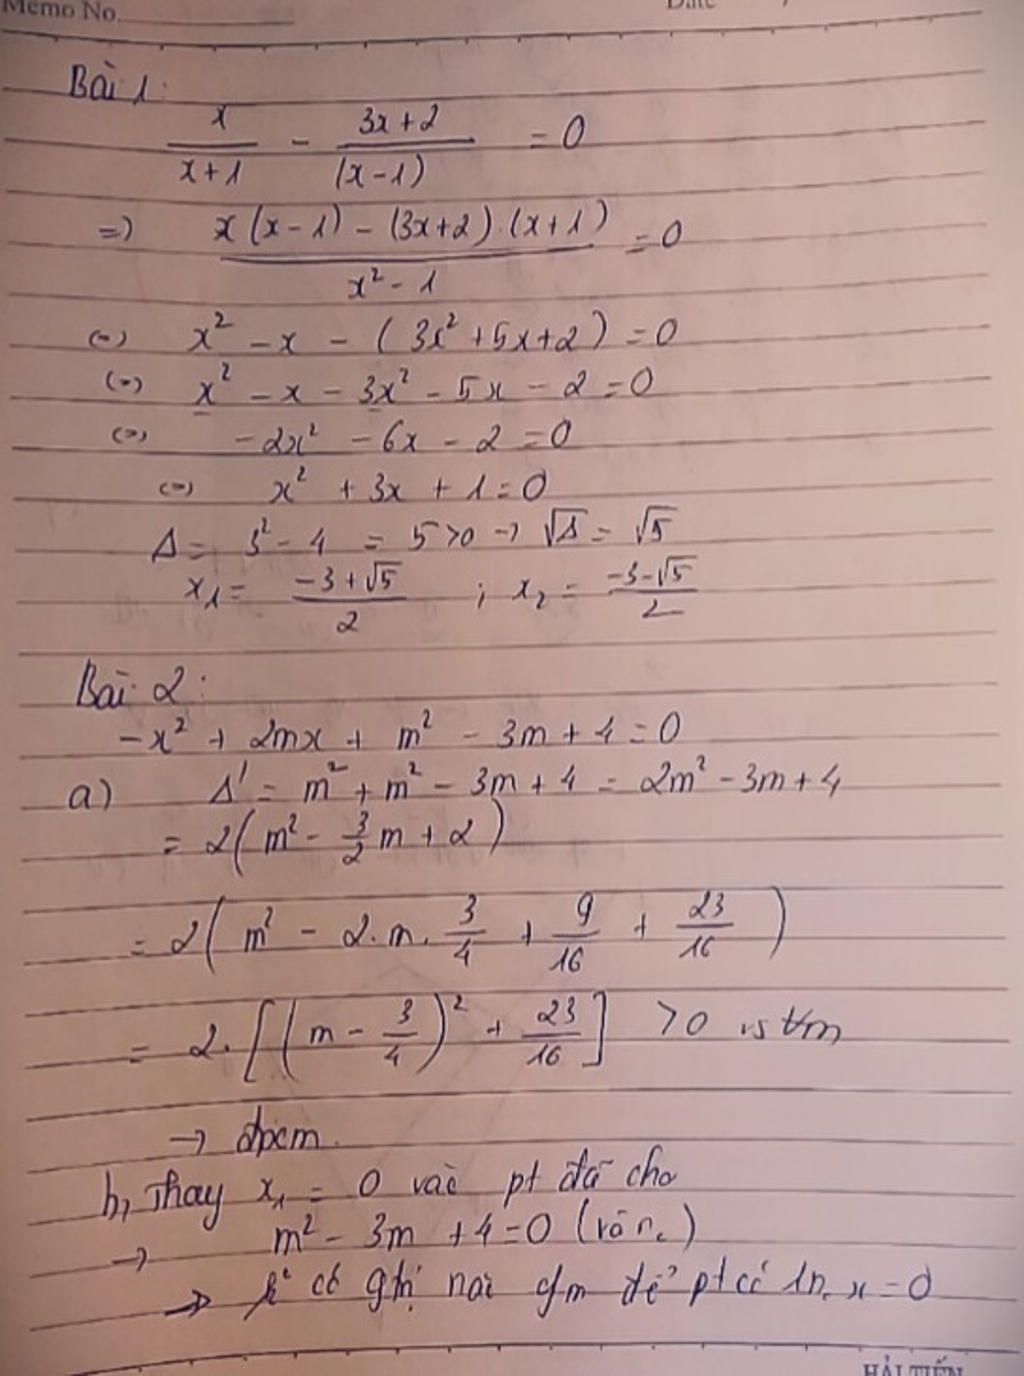 Memo No.
Date
Bài 1:
x/(x+1) - (3x+2)/(x-1) = 0
=) (x(x-1) - (3x+2).(x+1))/(x²-1) = 0
(=) x² - x - (3x² + 5x + 2) = 0
(=) x² - x - 3x² - 5x - 2 = 0
(=) -2x² - 6x - 2 = 0
(=) x² + 3x + 1 = 0
Δ = 3² - 4 = 5 > 0 → √Δ = √5
x₁ = (-3+√5)/2 ; x₂ = (-3-√5)/2
Bài 2:
-x² + 2mx + m² - 3m + 4 = 0
a) Δ' = m² + m² - 3m + 4 = 2m² - 3m + 4
= 2(m² - 3/2 m + 2)
= 2(m² - 2.m.3/4 + 9/16 + 23/16)
= 2.[(m - 3/4)² + 23/16] > 0 vs ∀m
→ đpcm.
b, Thay x₁ = 0 vào pt đã cho
→ m² - 3m + 4 = 0 (vô n.)
→ k° có gtrị nào c/m để pt có 1n. x = 0
HẢI TIẾN